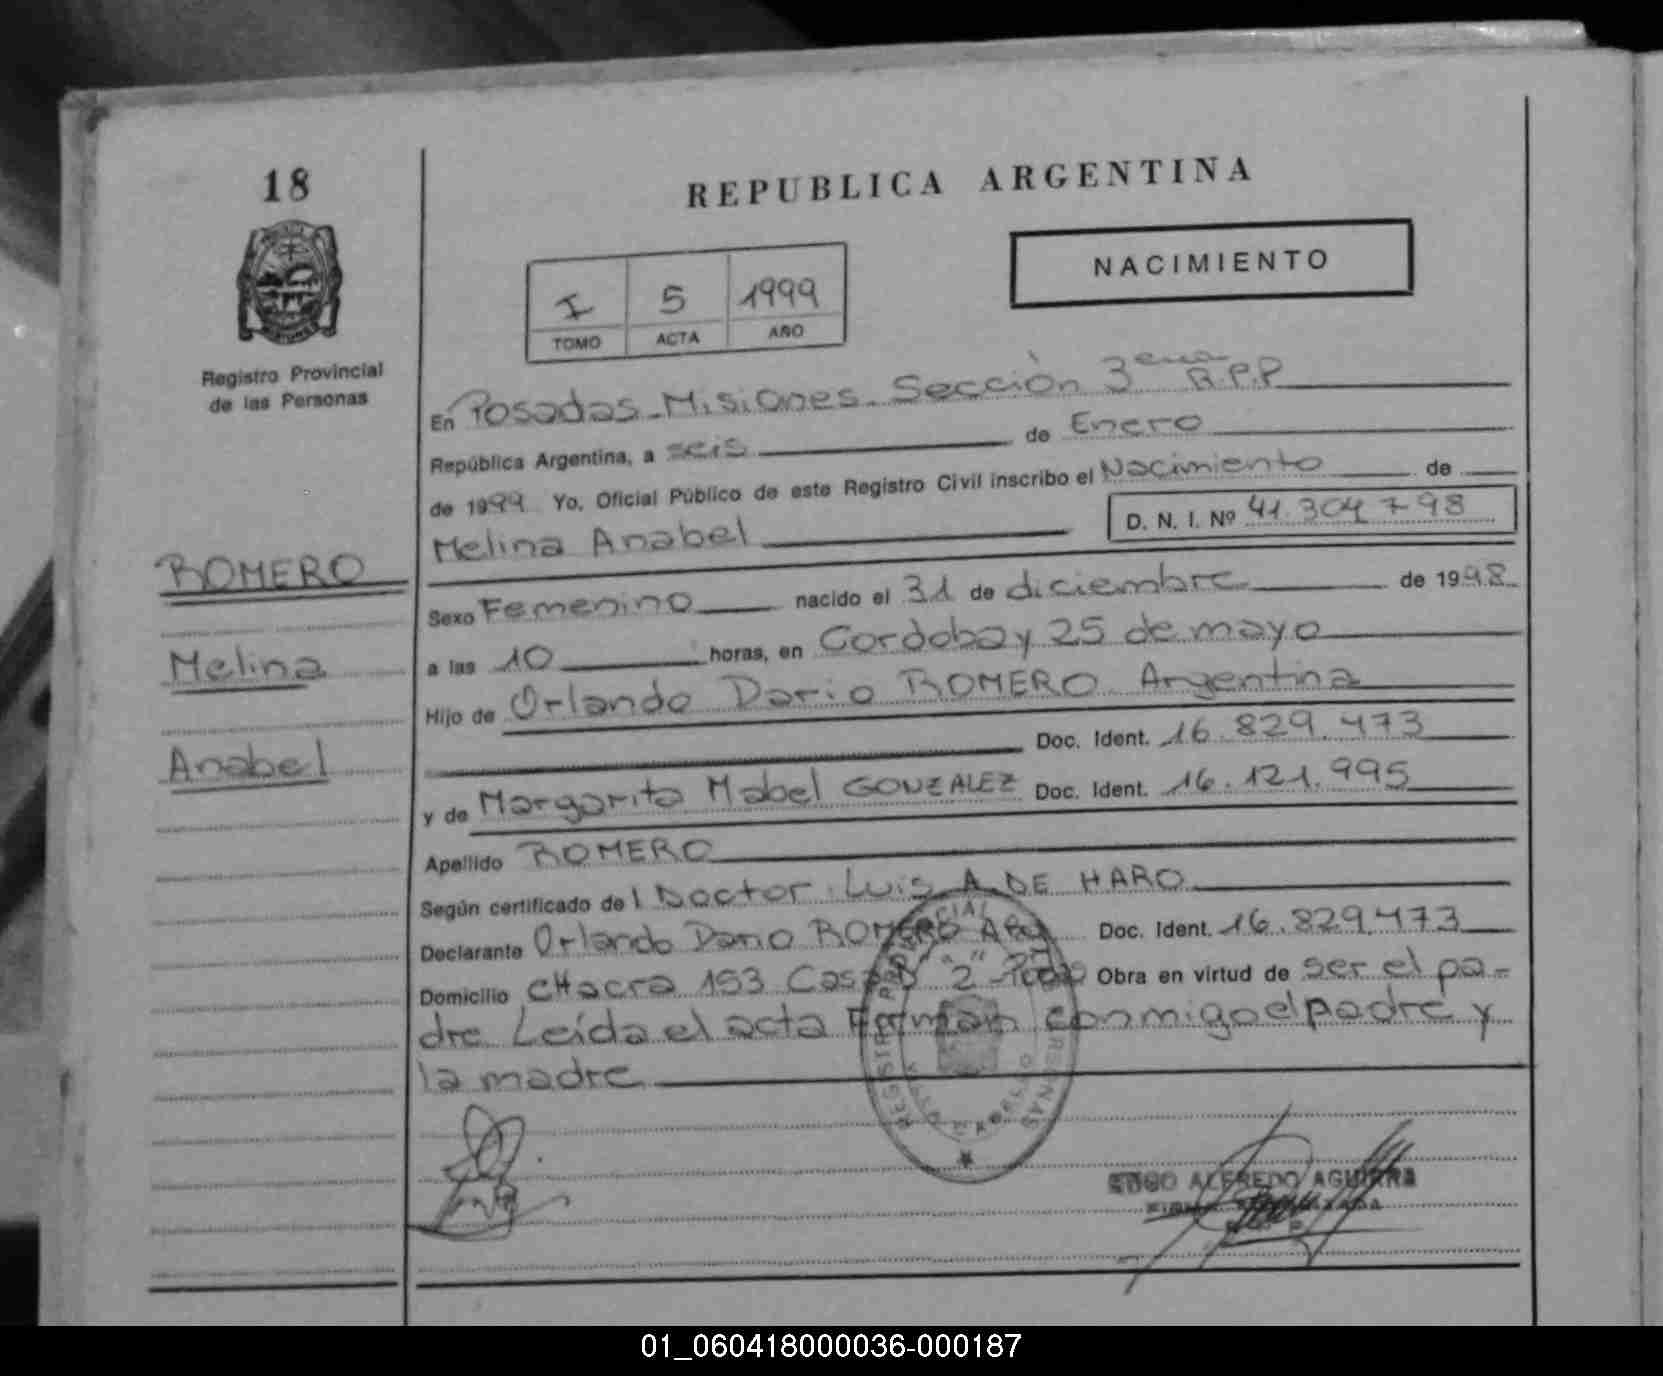 18
REPUBLICA ARGENTINA
NACIMIENTO
I 5 1999
TOMO ACTA AÑO
Registro Provincial
de las Personas
En Posadas-Misiones-Sección 3era R.P.P
República Argentina, a seis de Enero
de 1999 Yo, Oficial Público de este Registro Civil inscribo el Nacimiento de
Melina Anabel D. N. I. Nº 41.304.798
ROMERO
Melina
Anabel
Sexo Femenino nacido el 31 de diciembre de 1998
a las 10 horas, en Cordoba y 25 de mayo
Hijo de Orlando Dario ROMERO Argentina
Doc. Ident. 16.829.473
y de Margarita Mabel GONZALEZ Doc. Ident. 16.121.995
Apellido ROMERO
Según certificado del Doctor Luis A DE HARO
Declarante Orlando Dario ROMERO Doc. Ident. 16.829.473
Domicilio cHacra 153 "2" Obra en virtud de ser el pa-
dre Leída el acta Forman conmigo el padre y
la madre
ALFREDO AGUIRRE
01_060418000036-000187